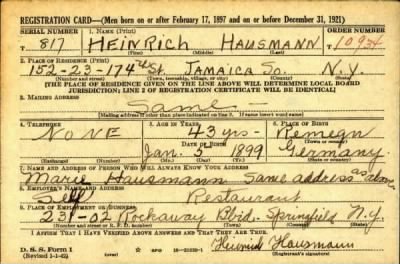 REGISTRATION CARD—(Men born on or after February 17, 1897 and on or before December 31, 1921)
SERIAL NUMBER 1. NAME (Print) ORDER NUMBER
T 817 HEINRICH HAUSMANN T10954
(First) (Middle) (Last)
2. PLACE OF RESIDENCE (Print)
152-23-174th St. JAMAICA So. N.Y.
(Number and street) (Town, township, village, or city) (County) (State)
[THE PLACE OF RESIDENCE GIVEN ON THE LINE ABOVE WILL DETERMINE LOCAL BOARD
JURISDICTION; LINE 2 OF REGISTRATION CERTIFICATE WILL BE IDENTICAL]
3. MAILING ADDRESS
Same —
[Mailing address if other than place indicated on line 2. If same insert word same]
4. TELEPHONE 5. AGE IN YEARS 6. PLACE OF BIRTH
NONE 43 yrs-
DATE OF BIRTH (Town or county)
Jan. 5 1899 Germany
(Exchange) (Number) (Mo.) (Day) (Yr.) (State or country)
7. NAME AND ADDRESS OF PERSON WHO WILL ALWAYS KNOW YOUR ADDRESS
Marie Hausmann Same address as above
8. EMPLOYER'S NAME AND ADDRESS
Self Restaurant
9. PLACE OF EMPLOYMENT OR BUSINESS
231-02 Rockaway Blvd. Springfield N.Y.
(Number and street or R. F. D. number) (Town) (County) (State)
I AFFIRM THAT I HAVE VERIFIED ABOVE ANSWERS AND THAT THEY ARE TRUE.
D. S. S. Form 1
(Revised 1-1-42) GPO 16—21630-1
Heinrich Hausmann
(Registrant's signature)